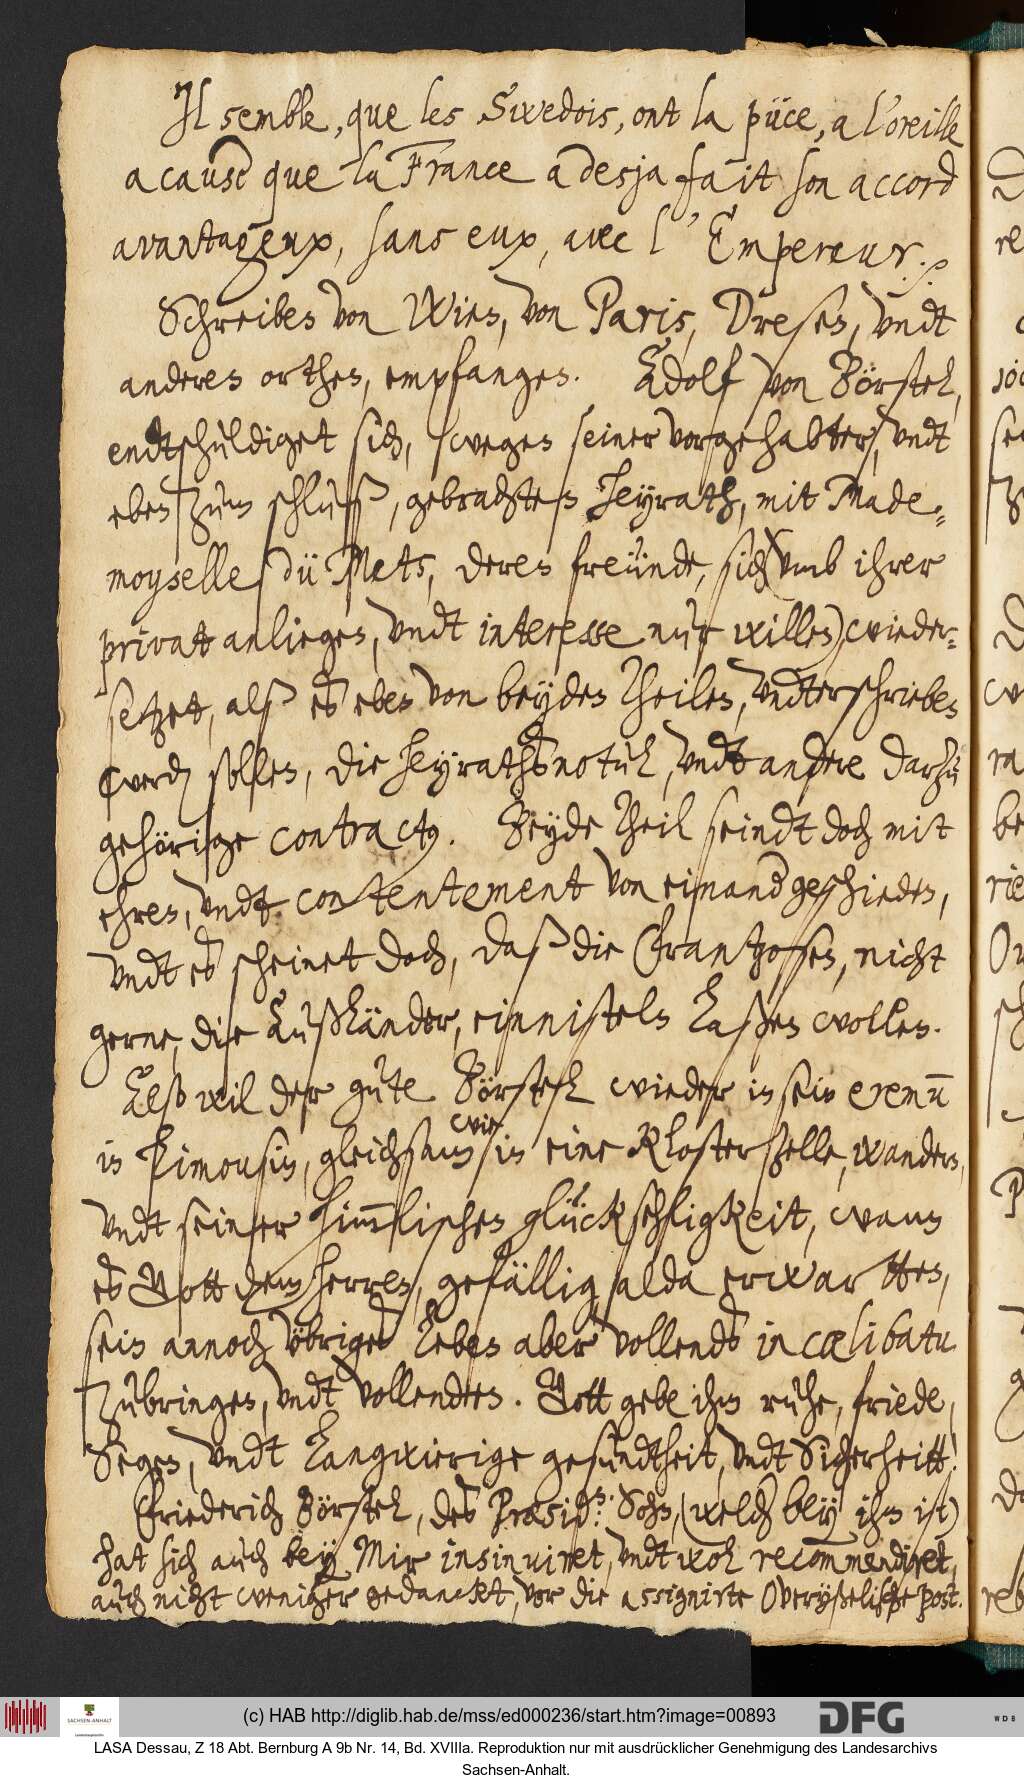 Il semble, que les Swedois, ont la püce, a l'oreille
a cause que la France a desja fait son accord
avantageux, sans eux, avec l' Empereur.
Schreiben von Wien, von Paris, Dresen, vndt
anderen orthen, empfangen. Adolf von Börstel,
endtschuldiget sich, wegen seiner vorgehabten, vndt
eben zum schluß, gebrachten Heyrath, mit Made-
moyselle du Mets, deren freünde, sich (vmb ihrer
privat anliegen, vndt interesse nur willen) wieder-
setzet, alß es eben von beyden Theilen, vndterschrieben
werden sollen, die Heyrathsnotul, vndt andere darzu
gehörige contracty. Beyde Theil seindt doch mit
ehren, vndt contentement von einander geschieden,
vndt es scheinet doch, daß die Frantzosen, nicht
gerne, die Außländer, einnisteln laßen wollen.
Alß will der gute Börstel wieder in sein eremum
in Limousin, gleichsam wie in eine Klosterzelle, wandern,
vndt seiner himmlischen glücksehligkeit, wann
es Gott dem Herren, gefällig, alda erwartten,
sein annoch übriges Leben aber vollends in cælibatu
zubringen, vndt vollenden. Gott gebe ihm ruhe, friede,
Segen, vndt langwierige gesundtheit, vndt Sicherheitt!
Friederich Börstel, des Præsid.s Sohn, (welcher bey ihm ist)
hat sich auch bey Mir insinuiret, vndt wol recommendiret,
auch nicht weniger gedanckt, vor die assignirte Overyßelische post.
(c) HAB http://diglib.hab.de/mss/ed000236/start.htm?image=00893
DFG
WDB
SACHSEN-ANHALT
LASA Dessau, Z 18 Abt. Bernburg A 9b Nr. 14, Bd. XVIIIa. Reproduktion nur mit ausdrücklicher Genehmigung des Landesarchivs
Sachsen-Anhalt.